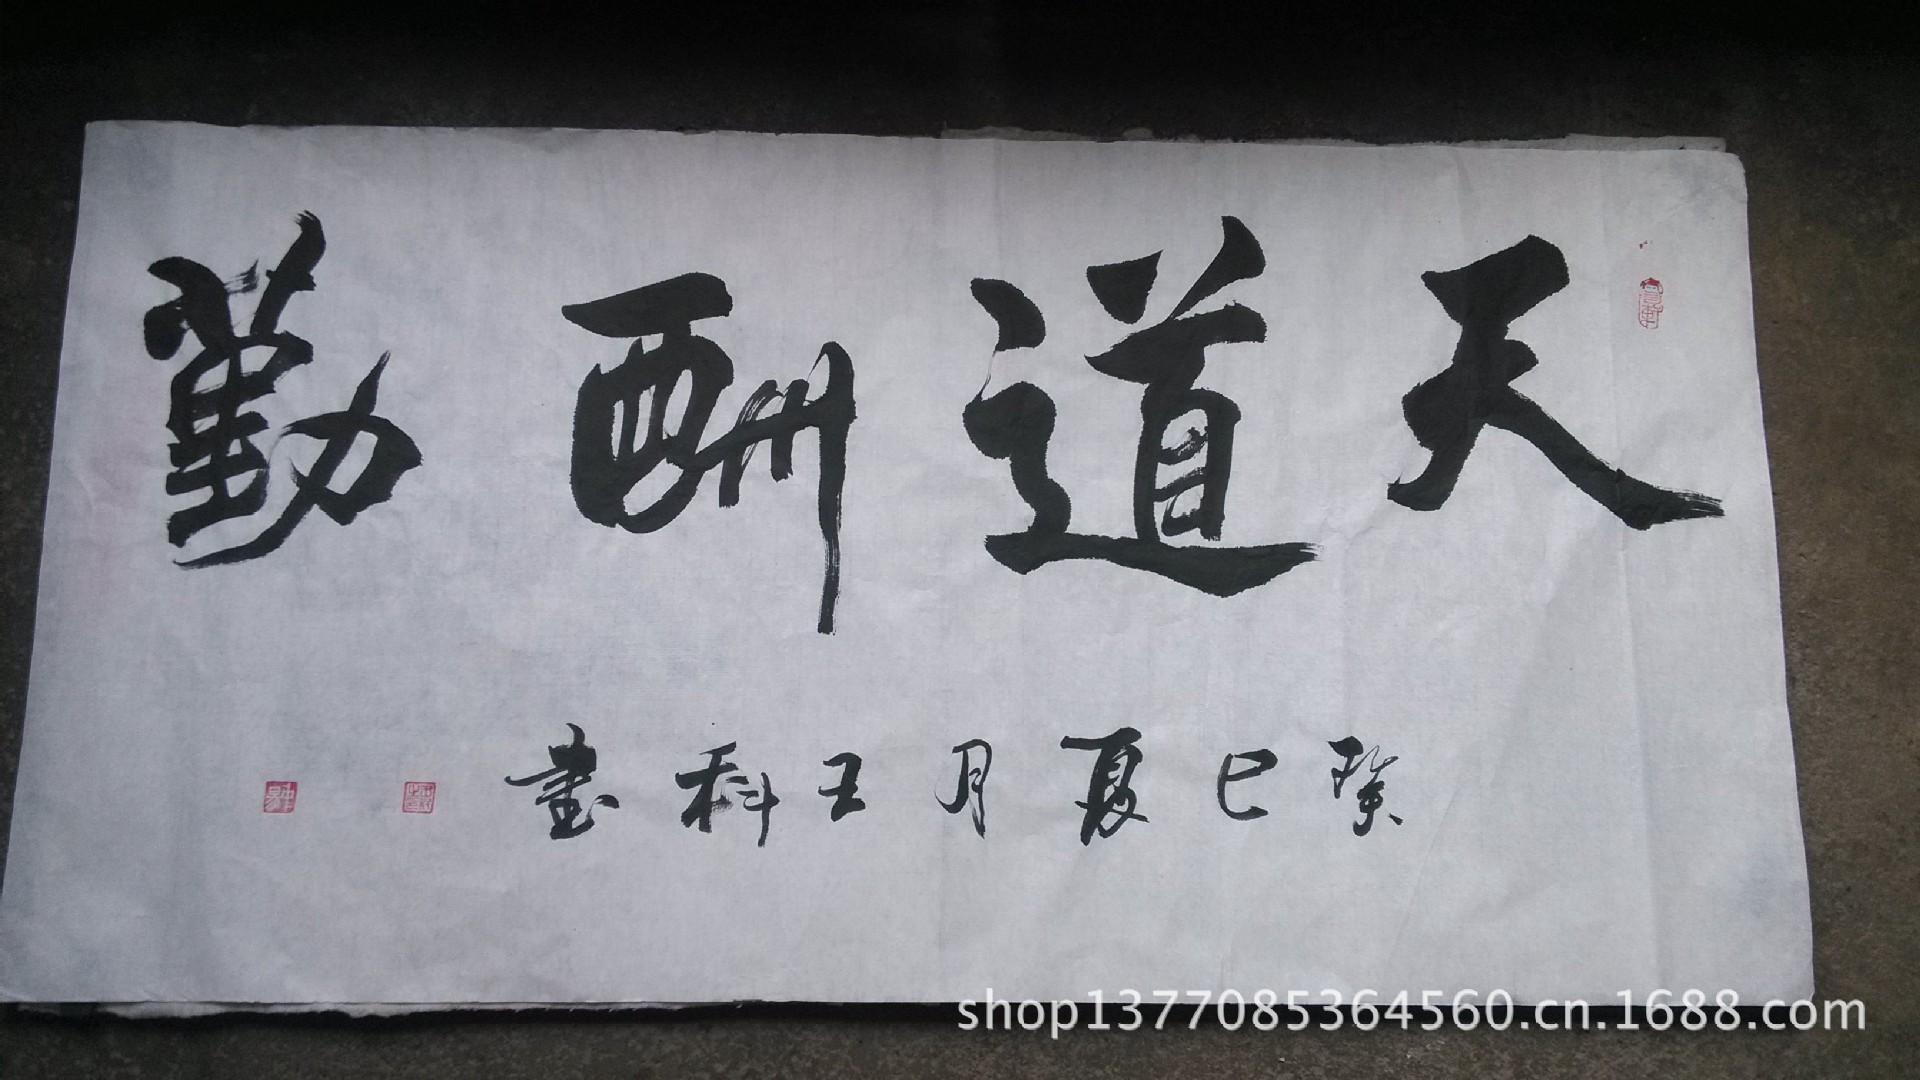 天道酬勤
癸巳夏月王科書
shop1377085364560.cn.1688.com